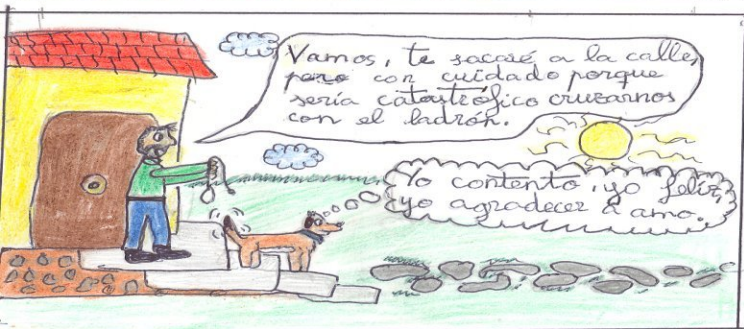 Vamos, te sacaré a la calle,
pero con cuidado porque
sería catastrófico cruzarnos
con el ladrón.
Yo contento, yo feliz,
yo agradecer a amo.